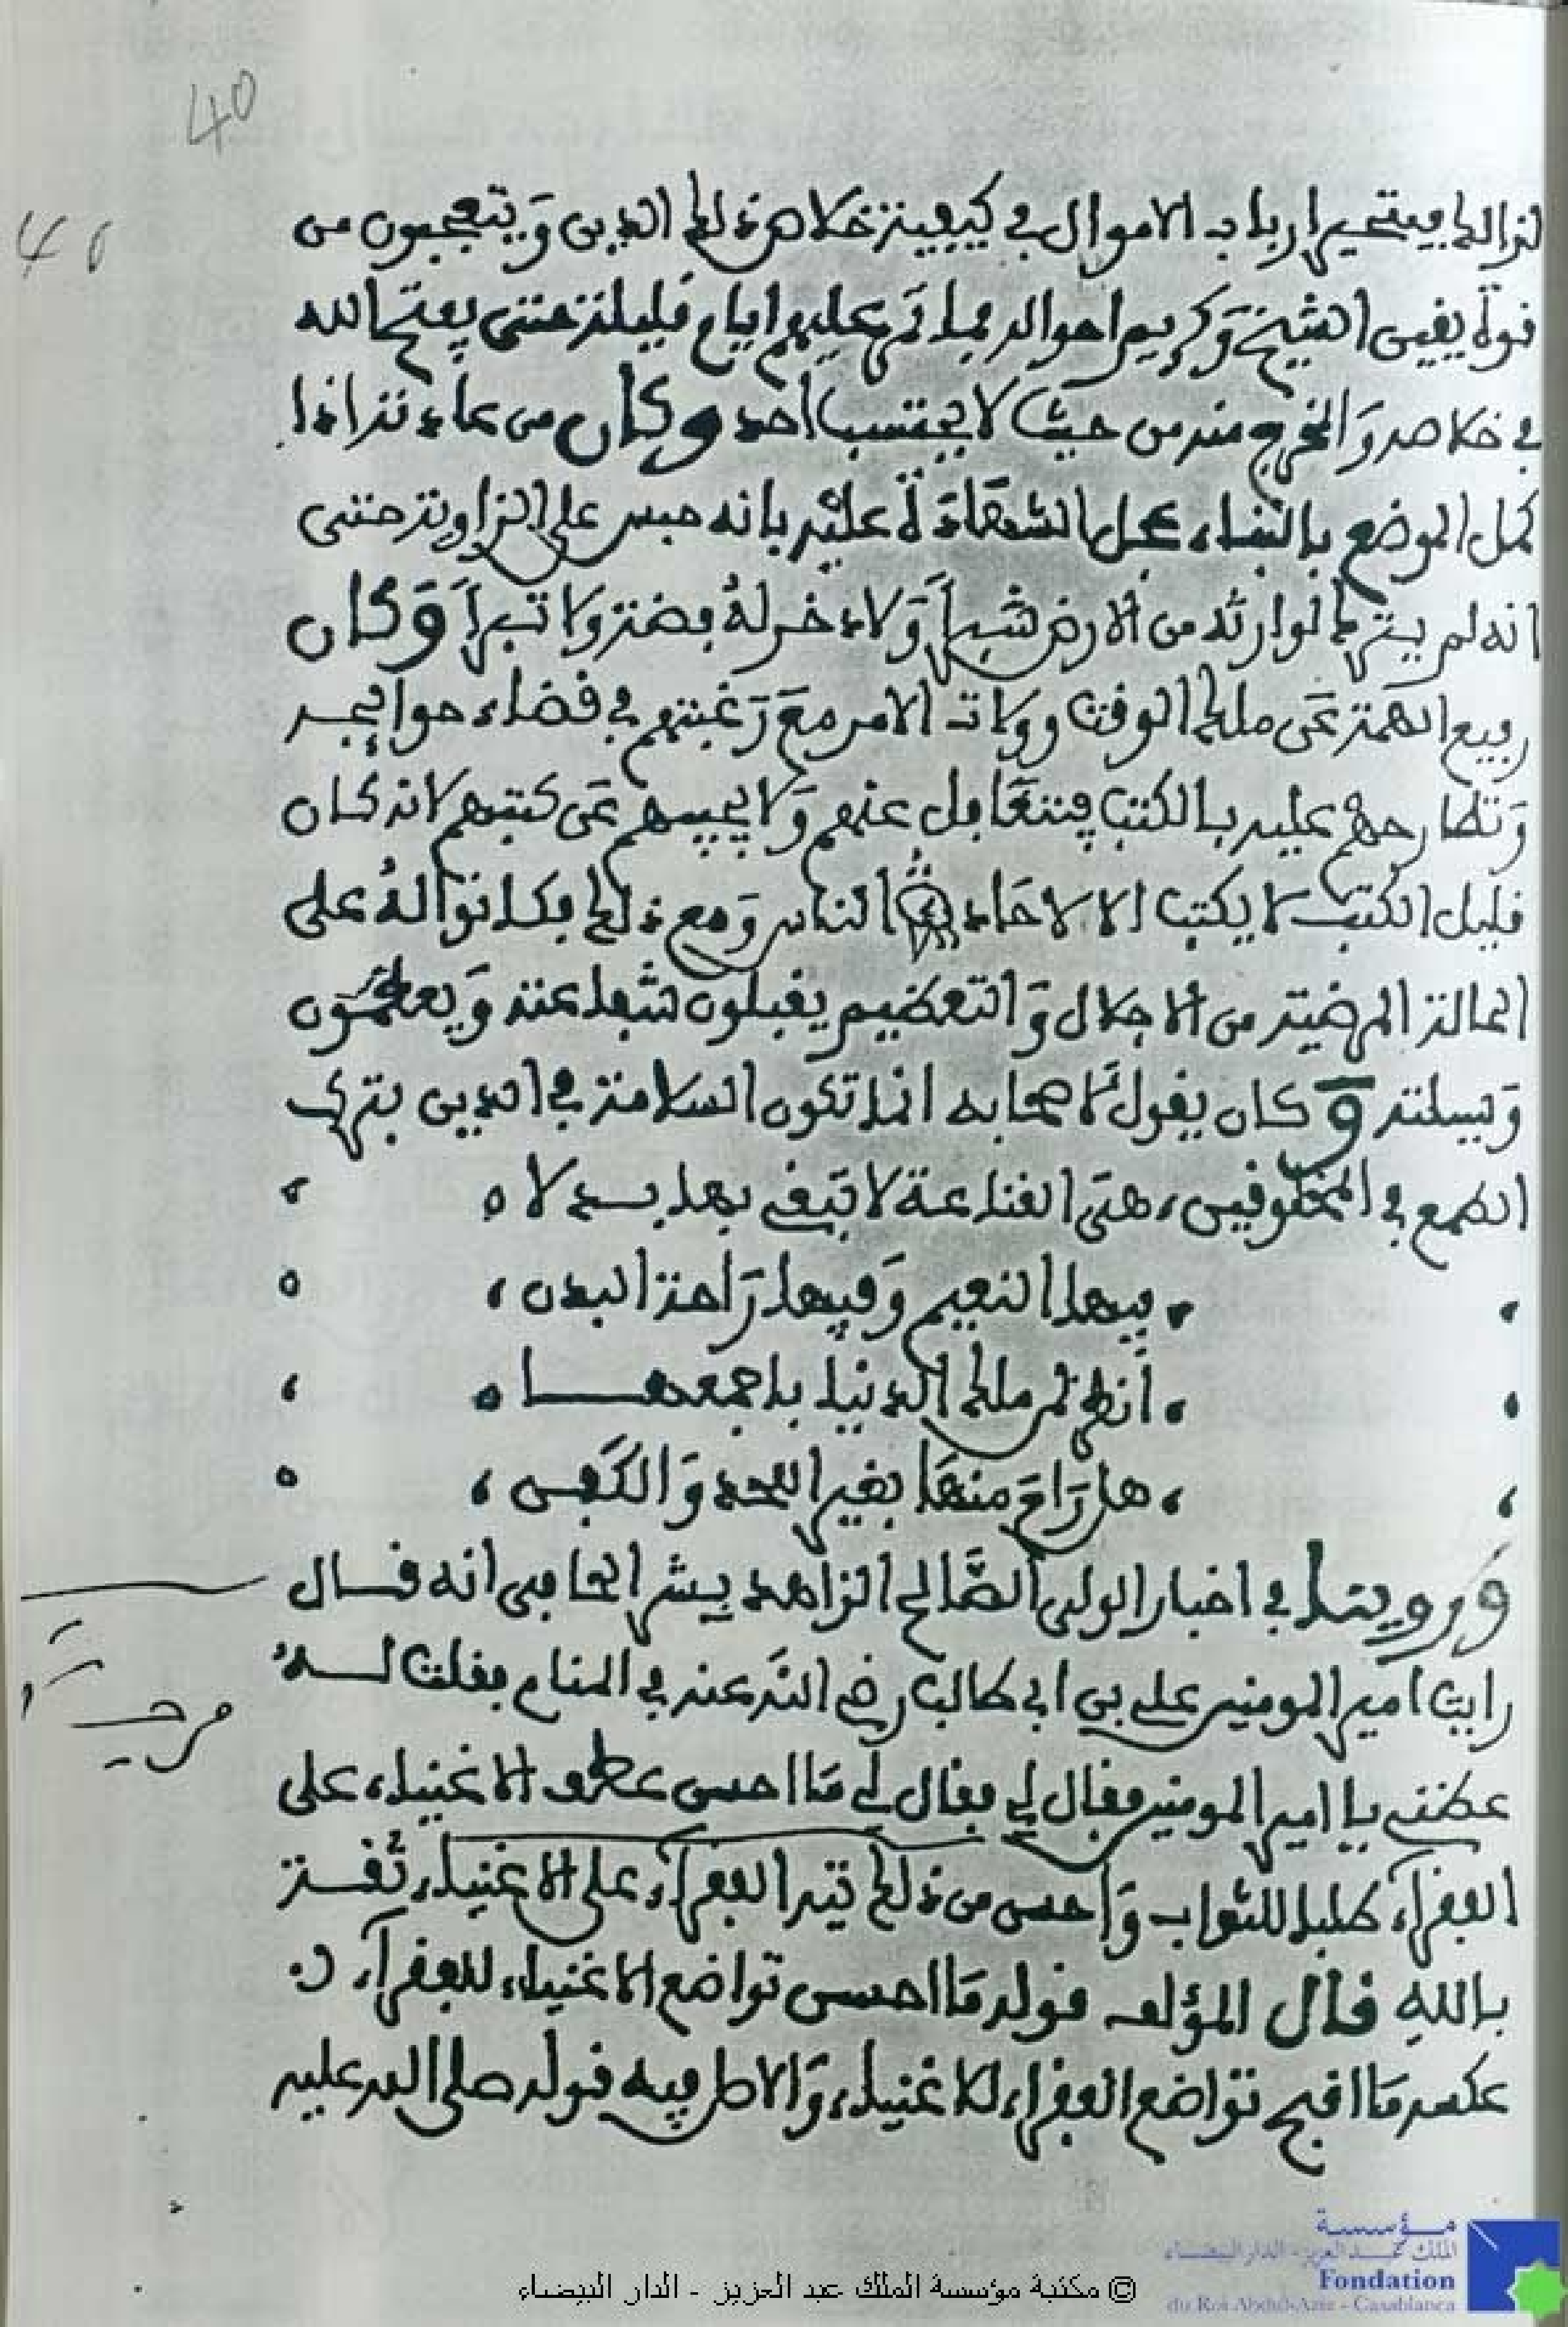 40
40
لذالك فيتحير ارباب الاموال في كيفية خلاص ذلك الدين وَيتعجبون من
قوة يقين الشيخ وَكريم احواله فما تمر عليهم ايام قليلة حتى يفتح الله
في خلاصه وَالمخرج منه من حيث لا يحتسب احد وكان من عادته اذا
كمل الموضع بالبناء عجل الشهادة عليه بانه حبس على الزاوية حتى
انه لم يترك لوارثه من الارض شبراً وَلا دخر لهُ فضة ولا تبراً وَكان
رفيع الهمة عَن ملك الوقت وولاة الامر معَ رَغبتهم في قضاء حوايجه
وَتطارحهم عليه بالكتب فيتغافل عنهم وَلا يجيبهم عَن كتبهم لانه كان
قليل الكتب لا يكتب الا لاحاد الناس وَمع ذلك فكانوا لهُ على
الحالة المرضية من الاجلال وَالتعظيم يقبلون شفاعته وَيعظمون
وَسيلته وَكان يقول لاصحابه انما تكون السلامة في الدين بترك
الطمع في المخلوقين، هيَ القناعة لا تبغي بها بدلا ه
، فيها النعيم وَفيها رَاحة البدن ،
، اُنظر لمن ملك الدنيا باجمعها ه
، هل رَاحَ منهَا بغير اللحد وَالكفن ،
وَرَوينا في اخبار الولي الصَّالح الزاهد بشر الحافي انه قال
رايت امير المومنين علي بن ابي طالب رضي الله عنه في المنام فقلت لهُ
عظني يا امير المومنين فقال لي فقال لي مَا احسن عطف الاغنياء على
الفقراء طلبا للثواب وَاحسن من ذلك تيه الفقراء على الاغنياء ثقة
بالله قال المؤلف قوله مَا احسن تواضع الاغنياء للفقراء
عكسه مَا اقبح تواضع الفقراء للاغنياء وَالاصل فيه قوله صلى الله عليه
مؤسسة
الملك عبد العزيز - الدار البيضاء
Fondation
du Roi Abdul-Aziz - Casablanca
© مكتبة مؤسسة الملك عبد العزيز - الدار البيضاء